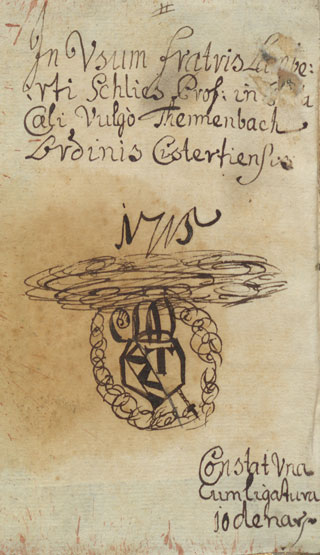 In Usum fratris
rti Schlies Prof: in
Cæli Vulgò Themenbach
Ordinis Cistertiensis
1715
Constat Una
Cum ligatura
10 denar